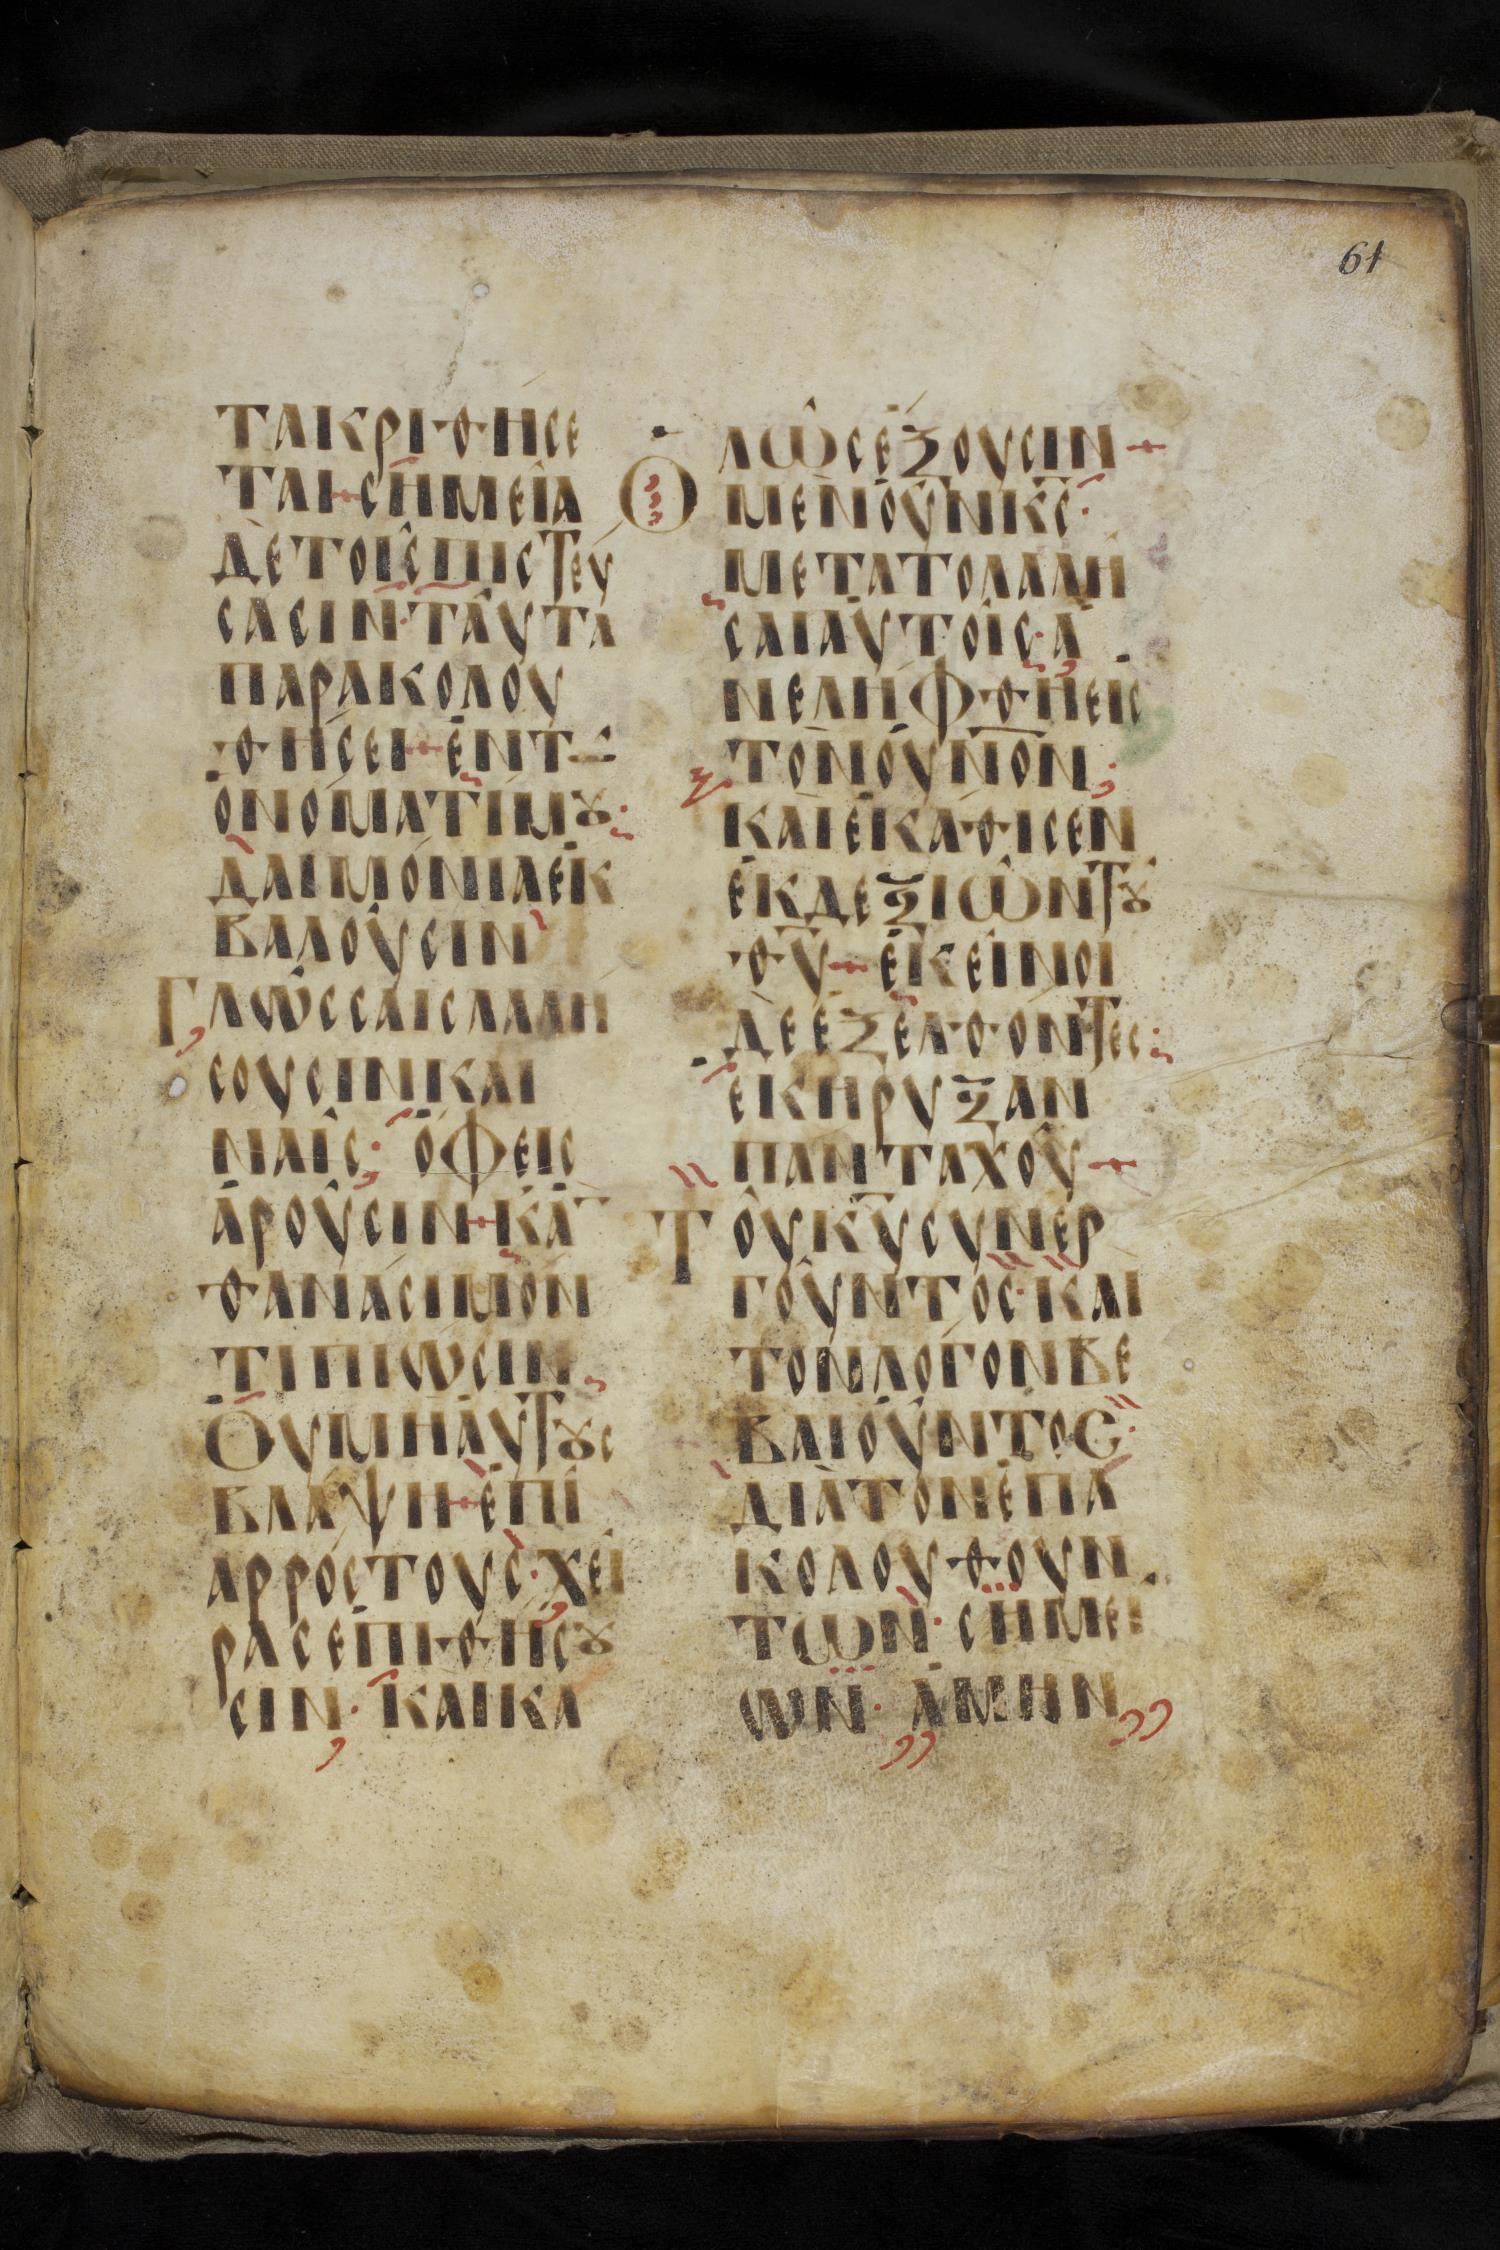 61
ΤΑΚΡΙΘΗCΕ
ΤΑΙ+CΗΜΕῖΑ
ΔῈΤΟΙ͂CΠΙCΤΕΥ
CΑCΙΝ·ΤΑΥ͂ΤΑ
ΠΑΡΑΚΟΛΟΥ
ΘΉCΕΙ+ἘΝΤ
ὈΝΌΜΑΤΊΜȢ·
ΔΑΙΜΌΝΙΑἘΚ
ΒΑΛΟΥ͂CΙΝ
ΓΛΏCCΑΙCΛΑΛΉ
CΟΥCΙΝΚΑΙ
ΝΑΙ͂C· ὌΦΕΙC
ἈΡΟΥ͂CΙΝ+ΚᾺ
ΘΑΝΆCΙΜΟΝ
ΤΙΠΊΩCΙΝ
ΟΥΜῊΑΥΤȢC
ΒΛΆΨΗ+ἘΠῚ
ΑΡΡΌCΤΟΥC·ΧΕΙ͂
ΡΑCἘΠΙΘΉCȢ
CΙΝ· ΚΑΙΚΑ
ΛΩ͂CἝΖΟΥCΙΝ+
ὉΜΕΝΟΥ͂ΝΚ̅C̅·
ΜΕΤΑΤΟΛΑΛΗ͂
CΑΙΑΥΤΟΙ͂C·Ἀ
ΝΕΛΉΦΘΗΕΙC
ΤΟΝΟΥ̅Ν̅Ο̅Ν
ΚΑΙἘΚΆΘΙCΕΝ
ἘΚΔΕΞΙΩ͂ΝΤȢ
Θ̅Υ̅+ἘΚΕΙ͂ΝΟΙ
ΔῈἘΖΕΛΘΌΝΤΕC·
ἘΚΉΡΥΞΑΝ
ΠΑΝΤΑΧΟΥ͂+
ΤΟΥ͂Κ̅Υ̅CΥΝΕΡ
ΓΟΥ͂ΝΤΟC·ΚΑΙ
ΤΟΝΛΌΓΟΝΒΕ
ΒΑΙΟΥ͂ΝΤΟC·
ΔΙᾺΤΟΝἘΠΑ
ΚΟΛΟΥΘΟΥΝ
ΤΩΝ· CΗΜΕΙ
ΩΝ· ἈΜΗΝ